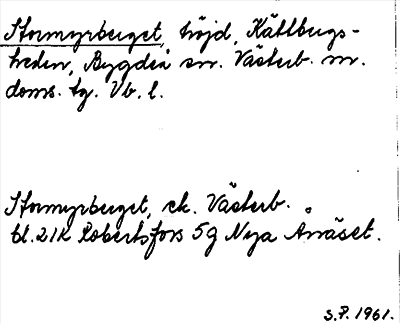 Stormyrberget, höjd, Kätlbergs-
heden, Bygdeå sn. Västerb. m.
doms. tg. Vb. l.
Stormyrberget, ek. Västerb.
bl. 21K Robertsfors 5g Nya Ånäset.
S.P. 1961.